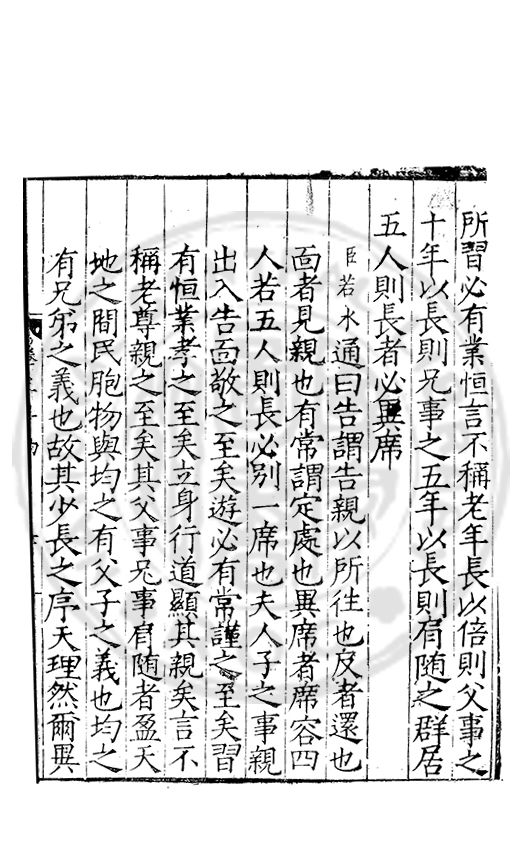 所習必有業恒言不稱老年長以倍則父事之
十年以長則兄事之五年以長則肩随之群居
五人則長者必異席
臣若水通曰告謂告親以所往也反者還也
面者見親也有常謂定處也異席者席容四
人若五人則長必别一席也夫人子之事親
出入告面敬之至矣遊必有常謹之至矣習
有恒業孝之至矣立身行道顯其親矣言不
稱老尊親之至矣其父事兄事肩随者盈天
地之間民胞物與均之有父子之義也均之
有兄弟之義也故其少長之序天理然爾異